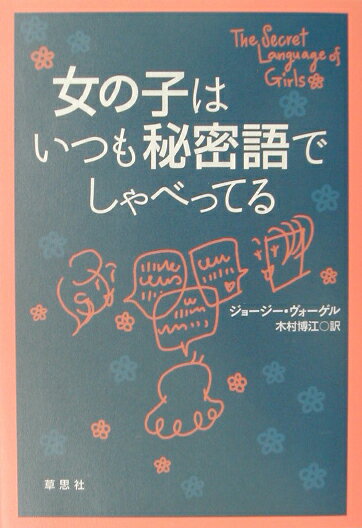 The Secret
Language of
Girls
女の子は
いつも秘密語で
しゃべってる
ジョージー・ヴォーゲル
木村博江○訳
草思社